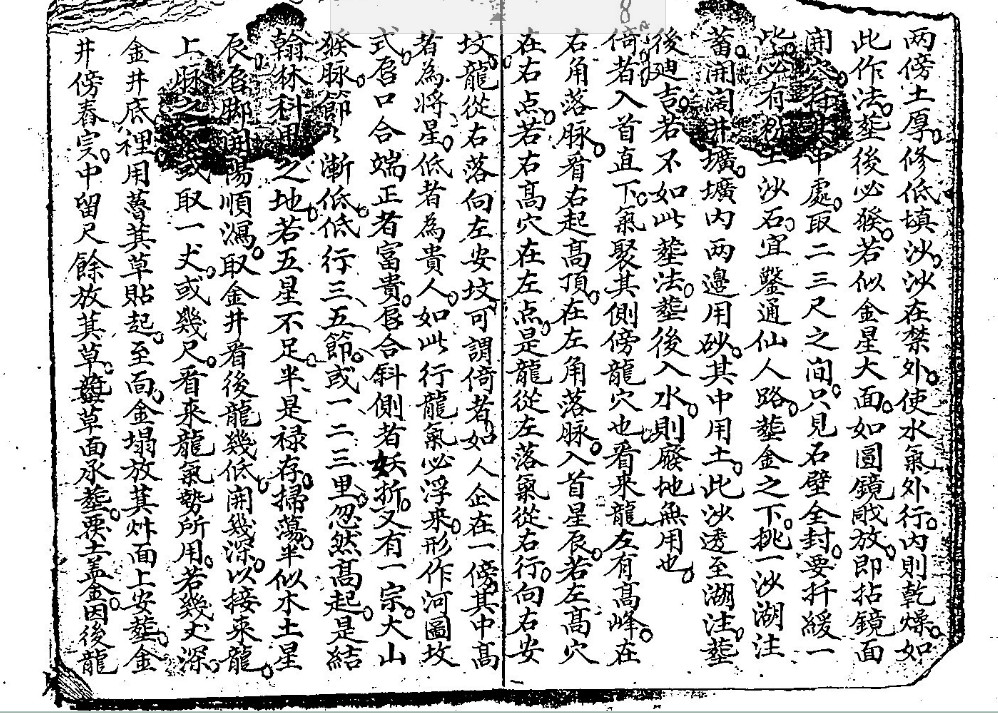 两傍土厚。修低填沙。沙在禁外。使水氣外行。内則乾燥。如
此作法。塟後必發。若似金星大面。如圓鏡戙放。即拈鏡面
開。中處。取二三尺之间。只見石壁全封。要扦緩一
此必有土沙石。宜鑿通仙人路。塟金之下。挑一沙湖注
蓄。開濶井壙。壙内两邊用砂。其中用土。此沙透至湖注。塟
後廸吉。若不如此塟法。塟後入水。則廢地無用也。
倚者。入首直下。氣聚其側傍。龍穴也。看来龍左有高峰。在
右角落脉。看右起高頂。在左角落脉。入首星辰。若左高穴
在右点。若右高穴在左点。是龍從左落。氣從右行。向右安
坟。龍從右落。向左安坟。可謂倚者。如人企在一傍。其中高
者為將星。低者為貴人。如此行龍。氣必浮来。形作河圖坟
式。唇口合端正者富貴。唇合斜側者妖折。又有一宗。大山
脉。節々漸低。低行三五節。或一二三里。忽然高起。是結
翰林科甲之地。若五星不足。半是禄存掃蕩。半似木土星
辰。唇脚開陽順瀉。取金井看後龍幾低。開幾深。以接来龍
上脉之或取一丈。或幾尺。看来龍氣勢所用。若幾丈深。
金井底裡。用蓢萁草貼起。至面。金塌放萁草面上安塟。金
井傍舂宲。中留尺餘。放萁草。草面承塟。要土盖金。因後龍